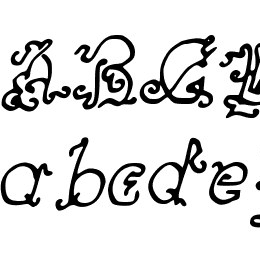 A B C
a b c d e